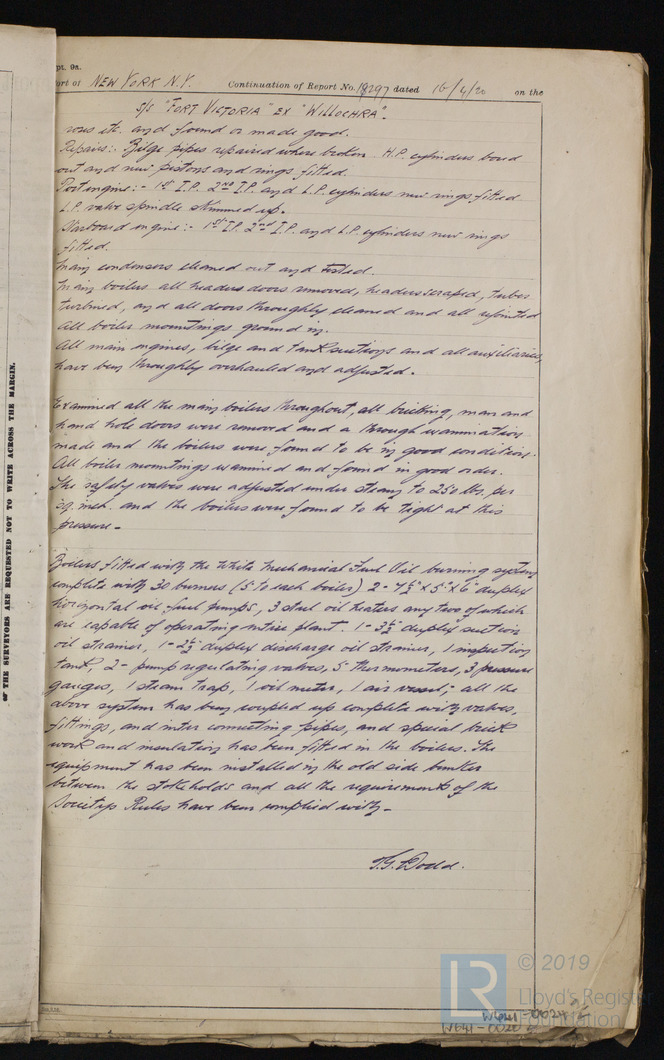 pt. 9a.
ort of NEW YORK N.Y. Continuation of Report No. 18297 dated 16/4/20 on the
S/S "FORT VICTORIA" EX "WILLOCHRA".
rows etc. and found or made good.
Repairs:- Bilge pipes repaired where broken. H.P. cylinders bored
out and new pistons and rings fitted.
Port engine:- 1st I.P. 2nd I.P. and L.P. cylinders new rings fitted
L.P. valve spindle skimmed up.
Starboard engine:- 1st I.P. 2nd I.P. and L.P. cylinders new rings
fitted.
Main condensers cleaned out and tested.
Main boilers all headers doors removed, headers scraped, tubes
turbined, and all doors throughly cleaned and all rejointed
All boiler mountings ground in.
All main engines, bilge and tank suctions and all auxiliaries,
have been throughly overhauled and adjusted.
Examined all the main boilers throughout, all bricking, man and
hand hole doors were removed and a through examination
made and the boilers were found to be in good condition.
All boiler mountings examined and found in good order.
The safety valves were adjusted under steam to 250 lbs. per
sq. inch. and the boilers were found to be tight at this
pressure.
Boilers fitted with the White Mechanical Fuel Oil burning system
complete with 30 burners (5 to each boiler) 2- 7½" x 5" x 6" duplex
horizontal oil fuel pumps, 3 steel oil heaters any two of which
are capable of operating entire plant. 1- 3½" duplex suction
oil strainer, 1- 2½" duplex discharge oil strainer, 1 inspection
tank, 2- pump regulating valves, 5 thermometers, 3 pressure
gauges, 1 steam trap, 1 oil meter, 1 air vessel; all the
above system has been coupled up complete with valves,
fittings, and inter connecting pipes, and special brick
work and insulation has been fitted in the boilers. The
equipment has been installed in the old side bunker
between the stokeholds and all the requirements of the
Societys Rules have been complied with.
T.G. Dodd.
OF THE SURVEYORS ARE REQUESTED NOT TO WRITE ACROSS THE MARGIN.
LR
© 2019
Lloyd's Register
Foundation